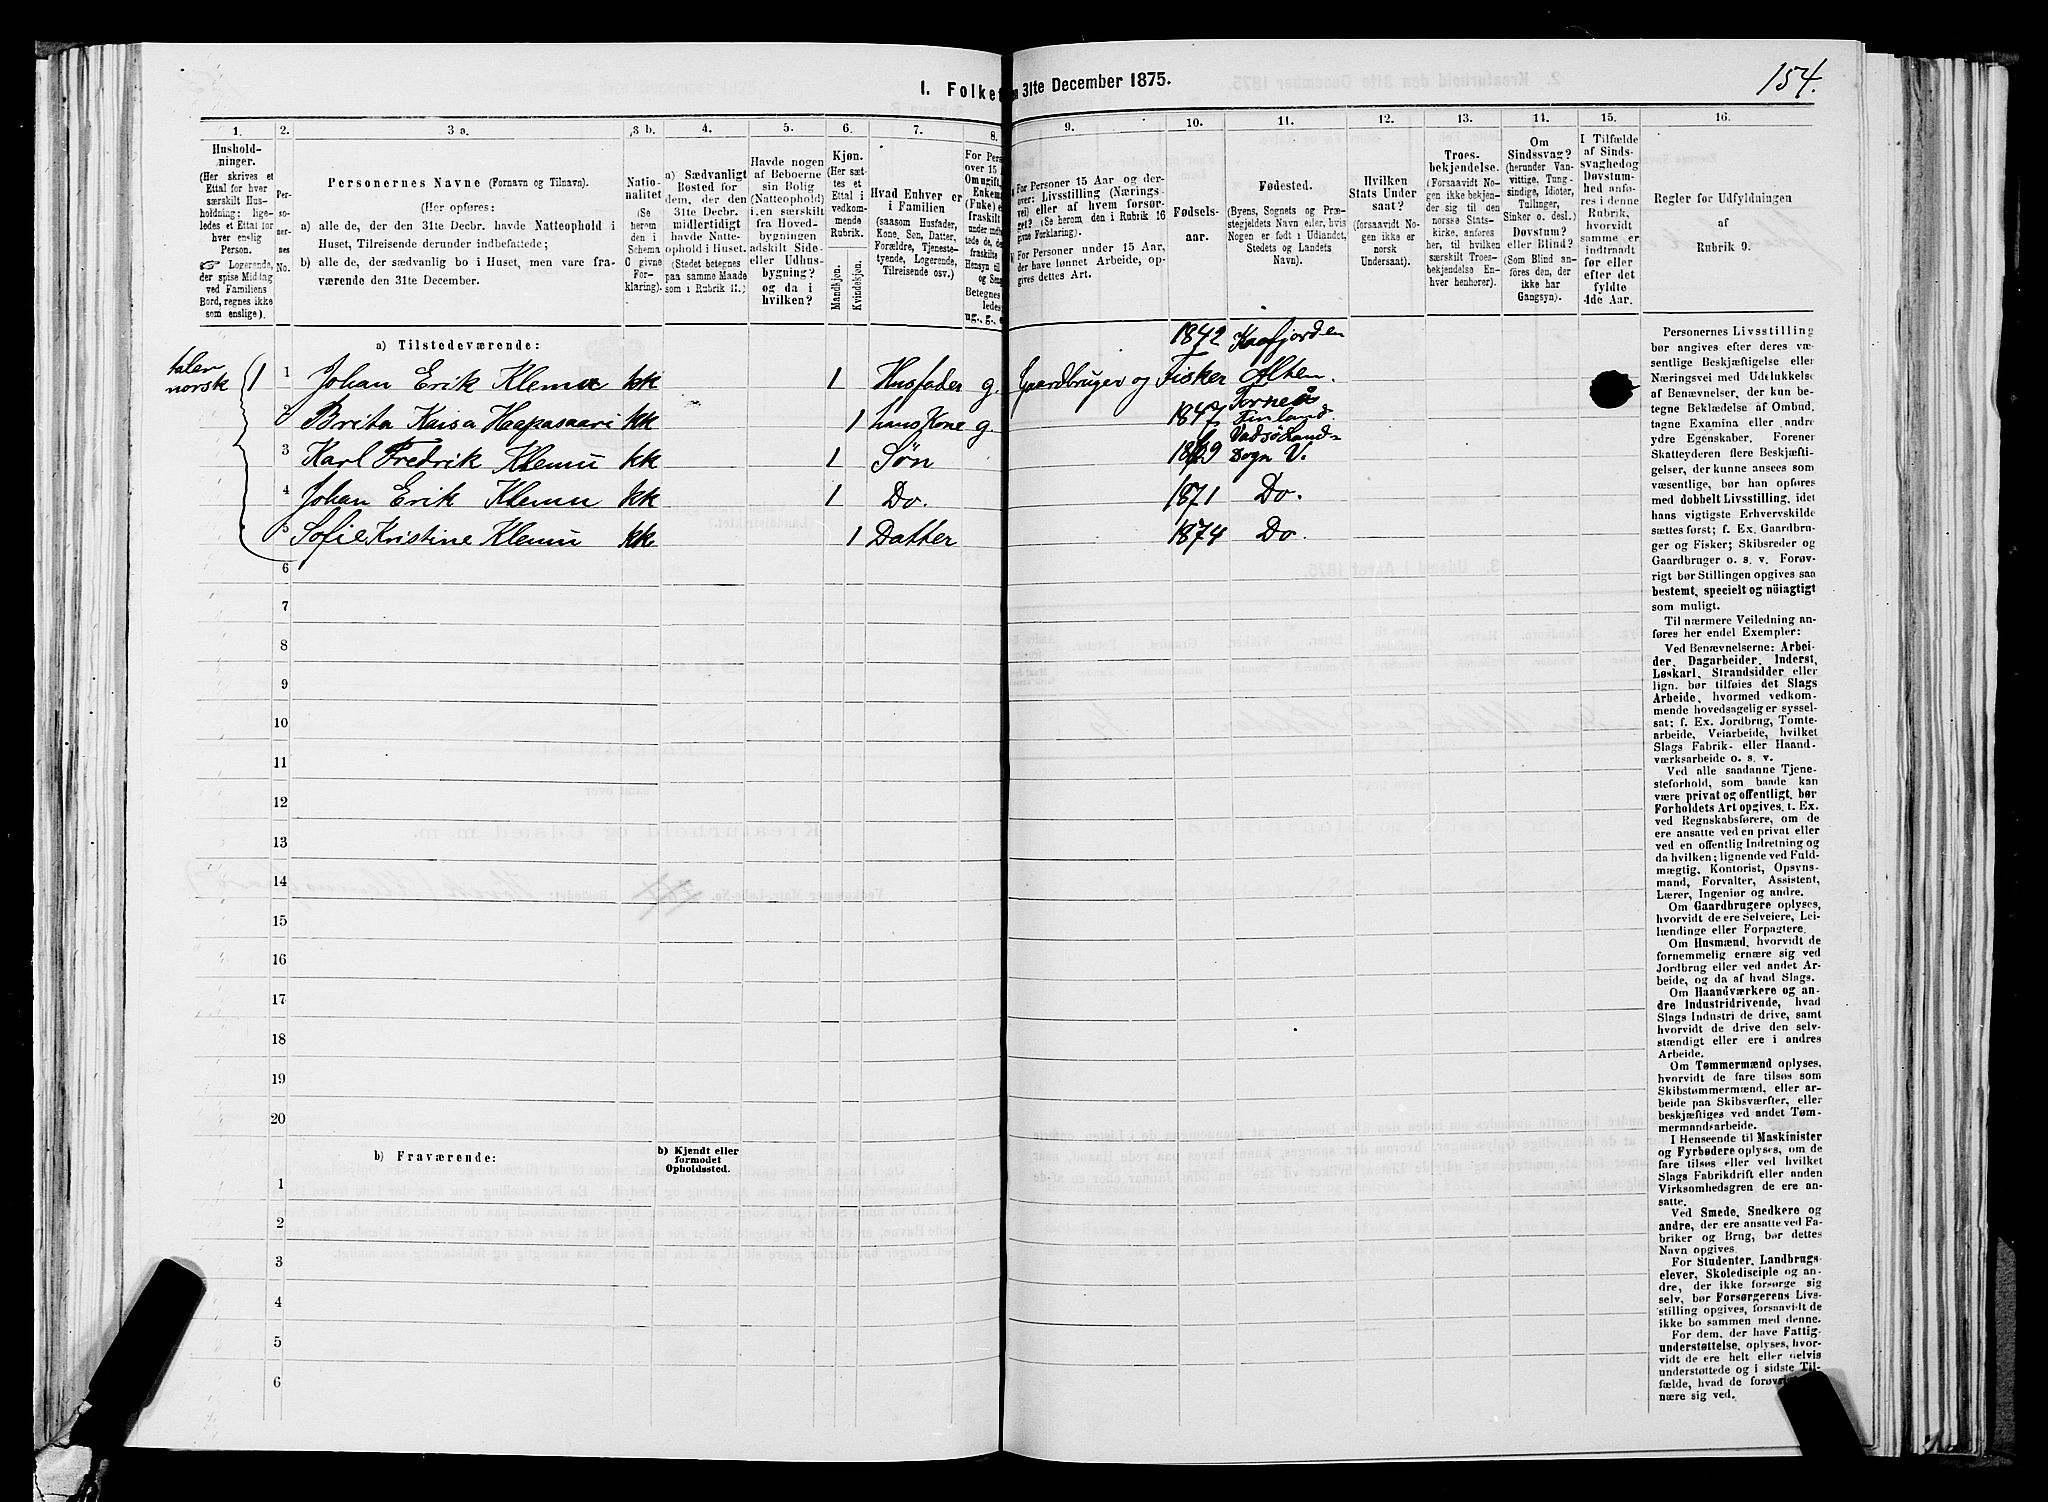 154.
1. Folket
n 31te December 1875.
1.
2.
3 a.
3 b.
4.
5.
6.
7.
8.
9.
10.
11.
12.
13.
14.
15.
16.
Hushold-
ninger.
(Her skrives et
Ettal for hver
særskilt Hus-
holdning; lige-
ledes et Ettal for
hver enslig
Person.
☞ Logerende,
der spise Middag
ved Familiens
Bord, regnes ikke
som enslige).
Per-
so-
ner-
nes
No.
Personernes Navne (Fornavn og Tilnavn).
(Her opføres:
a) alle de, der den 31te Decbr. havde Natteophold i
Huset, Tilreisende derunder indbefattede;
b) alle de, der sædvanlig bo i Huset, men vare fra-
værende den 31te December.
Natio-
nalitet
(Se
herom
den i
Schema
C givne
For-
klaring).
a) Sædvanligt
Bosted for
dem, der den
31te Decbr.
midlertidigt
havde Natte-
ophold i Huset.
(Stedet betegnes
paa samme Maade
som i Rubrik 11.)
Havde nogen
af Beboerne
sin Bolig
(Natteophold)
i en særskilt
fra Hoved-
bygningen
adskilt Side-
eller Udhus-
bygning?
og da i
hvilken?
Kjøn.
(Her sæt-
tes et
Ettal i
vedkom-
mende
Rubrik.
Mandkjøn.
Kvindekjøn.
Hvad Enhver er
i Familien
(saasom Husfader,
Kone, Søn, Datter,
Forældre, Tjeneste-
tyende, Logerende,
Tilreisende osv.)
For Pers
over 15
Om ugift,
Enkem
(Fuke) e
fraskilt
under indb
tede de,
fraskilte
Hensyn til
og Sen
Betegnes
ledes
ug., g., e
For Personer 15 Aar og der-
over: Livsstilling (Nærings-
vei) eller af hvem forsør-
get? (Se herom, den i Rubrik 16
givne Forklaring).
For Personer under 15 Aar,
der have lønnet Arbeide, op-
gives dettes Art.
Fødsels-
aar.
Fødested.
(Byens, Sognets og Præ-
stegjeldets Navn eller, hvis
Nogen er født i Udlandet,
Stedets og Landets
Navn).
Hvilken
Stats Under
saat?
(forsaavidt No-
gen ikke er
norsk
Undersaat).
Troes-
bekjendelse.
(Forsaavidt No-
gen ikke bekjen-
der sig til den
norske Stats-
kirke, anføres
her, til hvilken
særskilt Troes-
bekjendelse En-
hver henhører).
Om
Sindssvag?
(herunder Van-
vittige, Tung-
sindige, Idioter,
Tullinger,
Sinker o. desl.)
Døvstum?
eller Blind?
(Som Blind an-
føres den, der
ikke har
Gangsyn).
I Tilfælde
af Sinds-
svaghed og
Døvstum-
hed anfø-
res i denne
Rubrik,
hvorvidt
samme er
indtraadt
før eller
efter det
fyldte
4de Aar.
Regler for Udfyldningen
af
Rubrik 9.
a) Tilstedeværende:
taler
norsk
1 1 Johan Erik Klemu kk 1 Husfader g. Gaardbruger og Fisker 1842 Kaafjorden
Alten.
2 Brita Kaisa Haapasaari kk 1 hans Kone g. 1847 Torneå
Finland.
3 Karl Fredrik Klemu kk 1 Søn 1869 Vadsø Land-
sogn V.
4 Johan Erik Klemu kk 1 Do. 1871 Do.
5 Sofie Kristine Klemu kk 1 Datter 1874 Do.
6
7
8
9
10
11
12
13
14
15
16
17
18
19
20
b) Fraværende:
b) Kjendt eller
formodet
Opholdssted.
1
2
3
4
5
6
Personernes Livsstilling
bør angives efter deres væ-
sentlige Beskjæftigelse eller
Næringsvei med Udelukkelse
af Benævnelser, der kun be-
tegne Beklædelse af Ombud,
tagne Examina eller andre
ydre Egenskaber. Forener
Skatteyderen flere Beskjæfti-
gelser, der kunne ansees som
væsentlige, bør han opføres
med dobbelt Livsstilling, idet
hans vigtigste Erhvervskilde
sættes først; f. Ex. Gaardbru-
ger og Fisker; Skibsreder og
Gaardbruger o. s. v. Forøv-
rigt bør Stillingen opgives saa
bestemt, specielt og nöiagtigt
som muligt.
Til nærmere Veiledning an-
føres her endel Exempler:
Ved Benævnelserne: Arbei-
der, Dagarbeider, Inderst,
Løskarl, Strandsidder eller
lign. bør tilføies det Slags
Arbeide, hvormed vedkom-
mende hovedsagelig er syssel-
sat; f. Ex. Jordbrug, Tomte-
arbeide, Veiarbeide, hvilket
Slags Fabrik- eller Haand-
værksarbeide o. s. v.
Ved alle saadanne Tjene-
steforhold, som baade kan
være privat og offentligt, bør
Forholdets Art opgives, t. Ex.
ved Regnskabsførere, om de
ere ansatte ved en privat eller
ved en offentlig Indretning og
da hvilken; lignende ved Fuld-
mægtig, Kontorist, Opsyns-
mand, Forvalter, Assistent,
Lærer, Ingeniør og andre.
Om Gaardbrugere oplyses,
hvorvidt de ere Selveiere, Lei-
lændinge eller Forpagtere.
Om Husmænd, hvorvidt de
fornemmelig ernære sig ved
Jordbrug eller ved andet Ar-
beide, og da af hvad Slags.
Om Haandværkere og an-
dre Industridrivende, hvad
Slags Industri de drive, samt
hvorvidt de drive den selv-
stændigt eller ere i andres
Arbeide.
Om Tømmermænd oplyses,
hvorvidt de fare tilsøs som
Skibstømmermænd, eller ar-
beide paa Skibsværfter, eller
beskjæftiges ved andet Tøm-
mermandsarbeide.
I Henseende til Maskinister
og Fyrbødere oplyses, om de
fare tilsøs eller ved hvilket
Slags Fabrikdrift eller anden
Virksomhedsgren de ere an-
satte.
Ved Smede, Snedkere og
andre, der ere ansatte ved Fa-
briker og Brug, bør dettes
Navn opgives.
For Studenter, Landbrugs-
elever, Skoledisciple og an-
dre, der ikke forsørge sig
selv, bør Forsørgerens Livs-
stilling opgives, forsaavidt de
ikke bo sammen med denne.
For dem, der have Fattig-
understøttelse, oplyses, hvor-
vidt de ere helt eller delvis
understøttede og i sidste Til-
fælde, hvad de forøvrigt
nære sig ved.